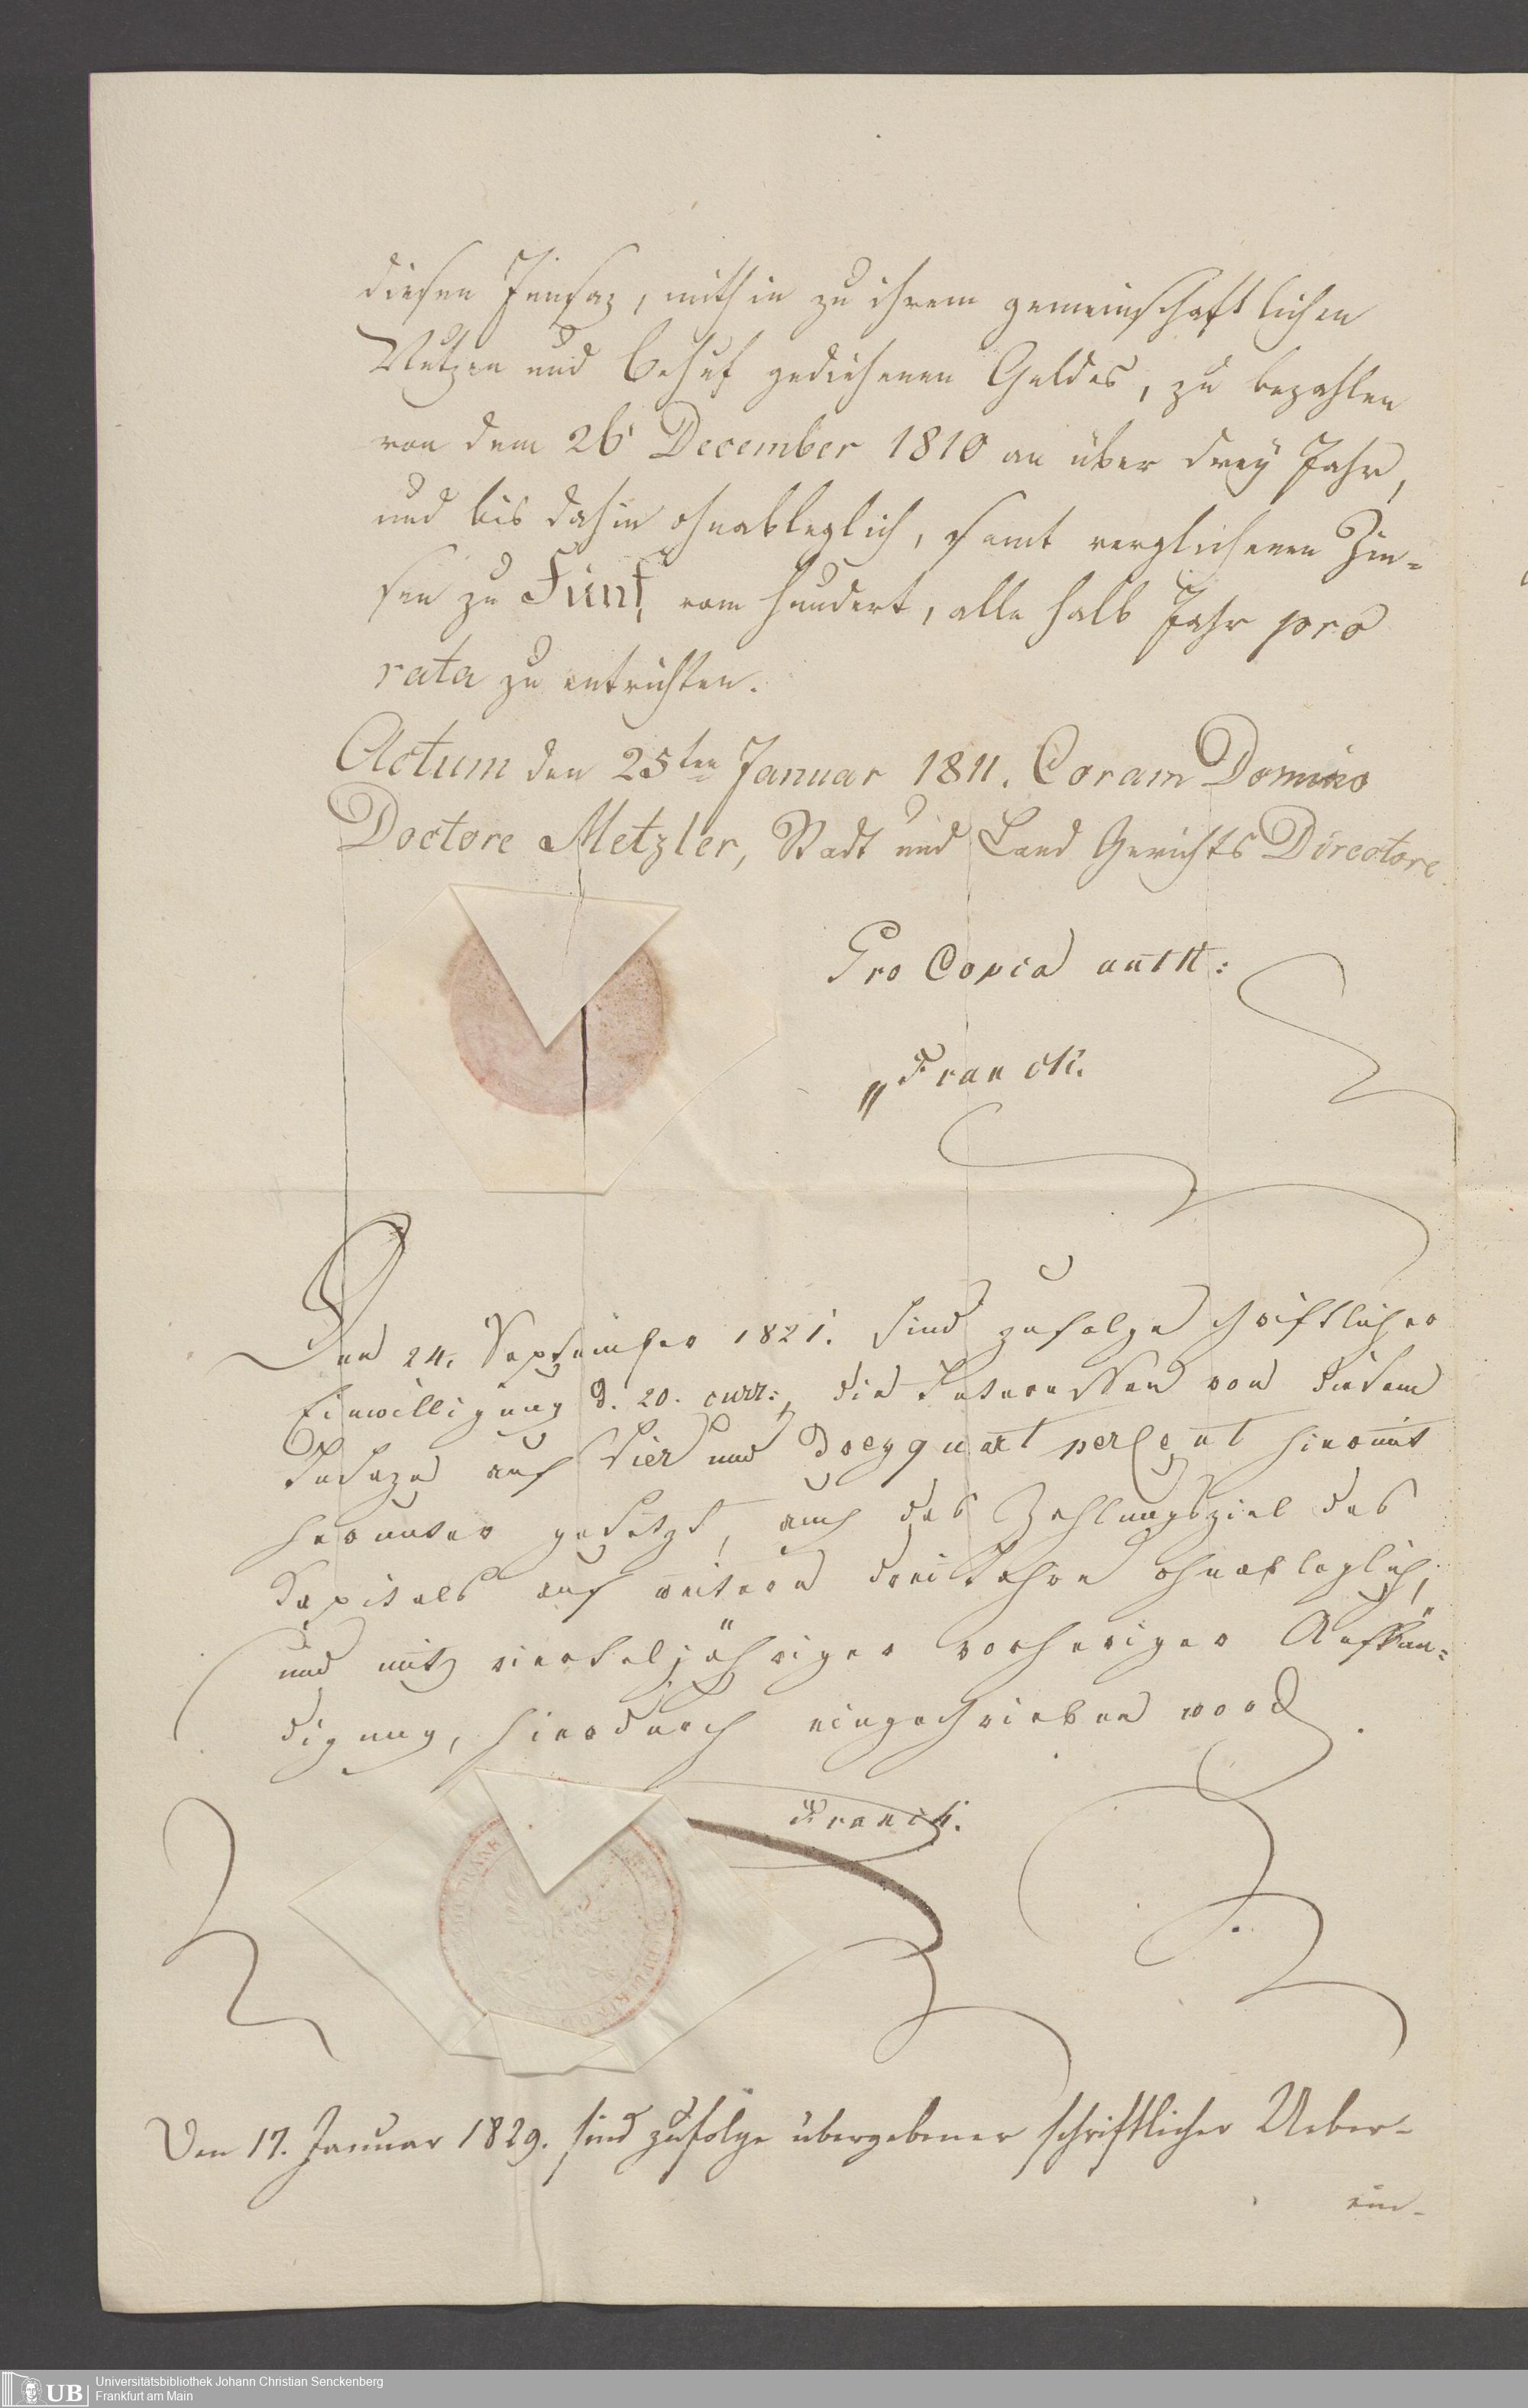 diesen Innsaz, mithin zu ihrem gemeinschaftlichen
Nutzen und Behuf gediehenen Geldes, zu bezahlen
von dem 26 December 1810 an über drey Jahr,
und bis dahin ohnableglich, samt verglichenen Zin-
sen zu Fünf, vom hundert, alle halb Jahr pro
rata zu entrichten.
Actum den 25ten Januar 1811. Coram Domino
Doctore Metzler, Stadt und Land Gerichts Directore
Pro Copia auth:
Franck.
Den 24. September 1821. sind zufolge schriftlicher
Einwilligung d. 20. curr:, die Interessen von diesem
Insaze auf Vier und dreyquart percent hiermit
herunter gesetzt, auch das Zahlungsziel des
Kapitals auf weitere drei Jahre ohnableglich,
und mit vierteljähriger vorheriger Aufkün-
digung, hierdurch eingeschrieben word.
Franck.
Den 17. Januar 1829. sind zufolge übergebener schriftlicher Ueber-
ein-
UB
Universitätsbibliothek Johann Christian Senckenberg
Frankfurt am Main